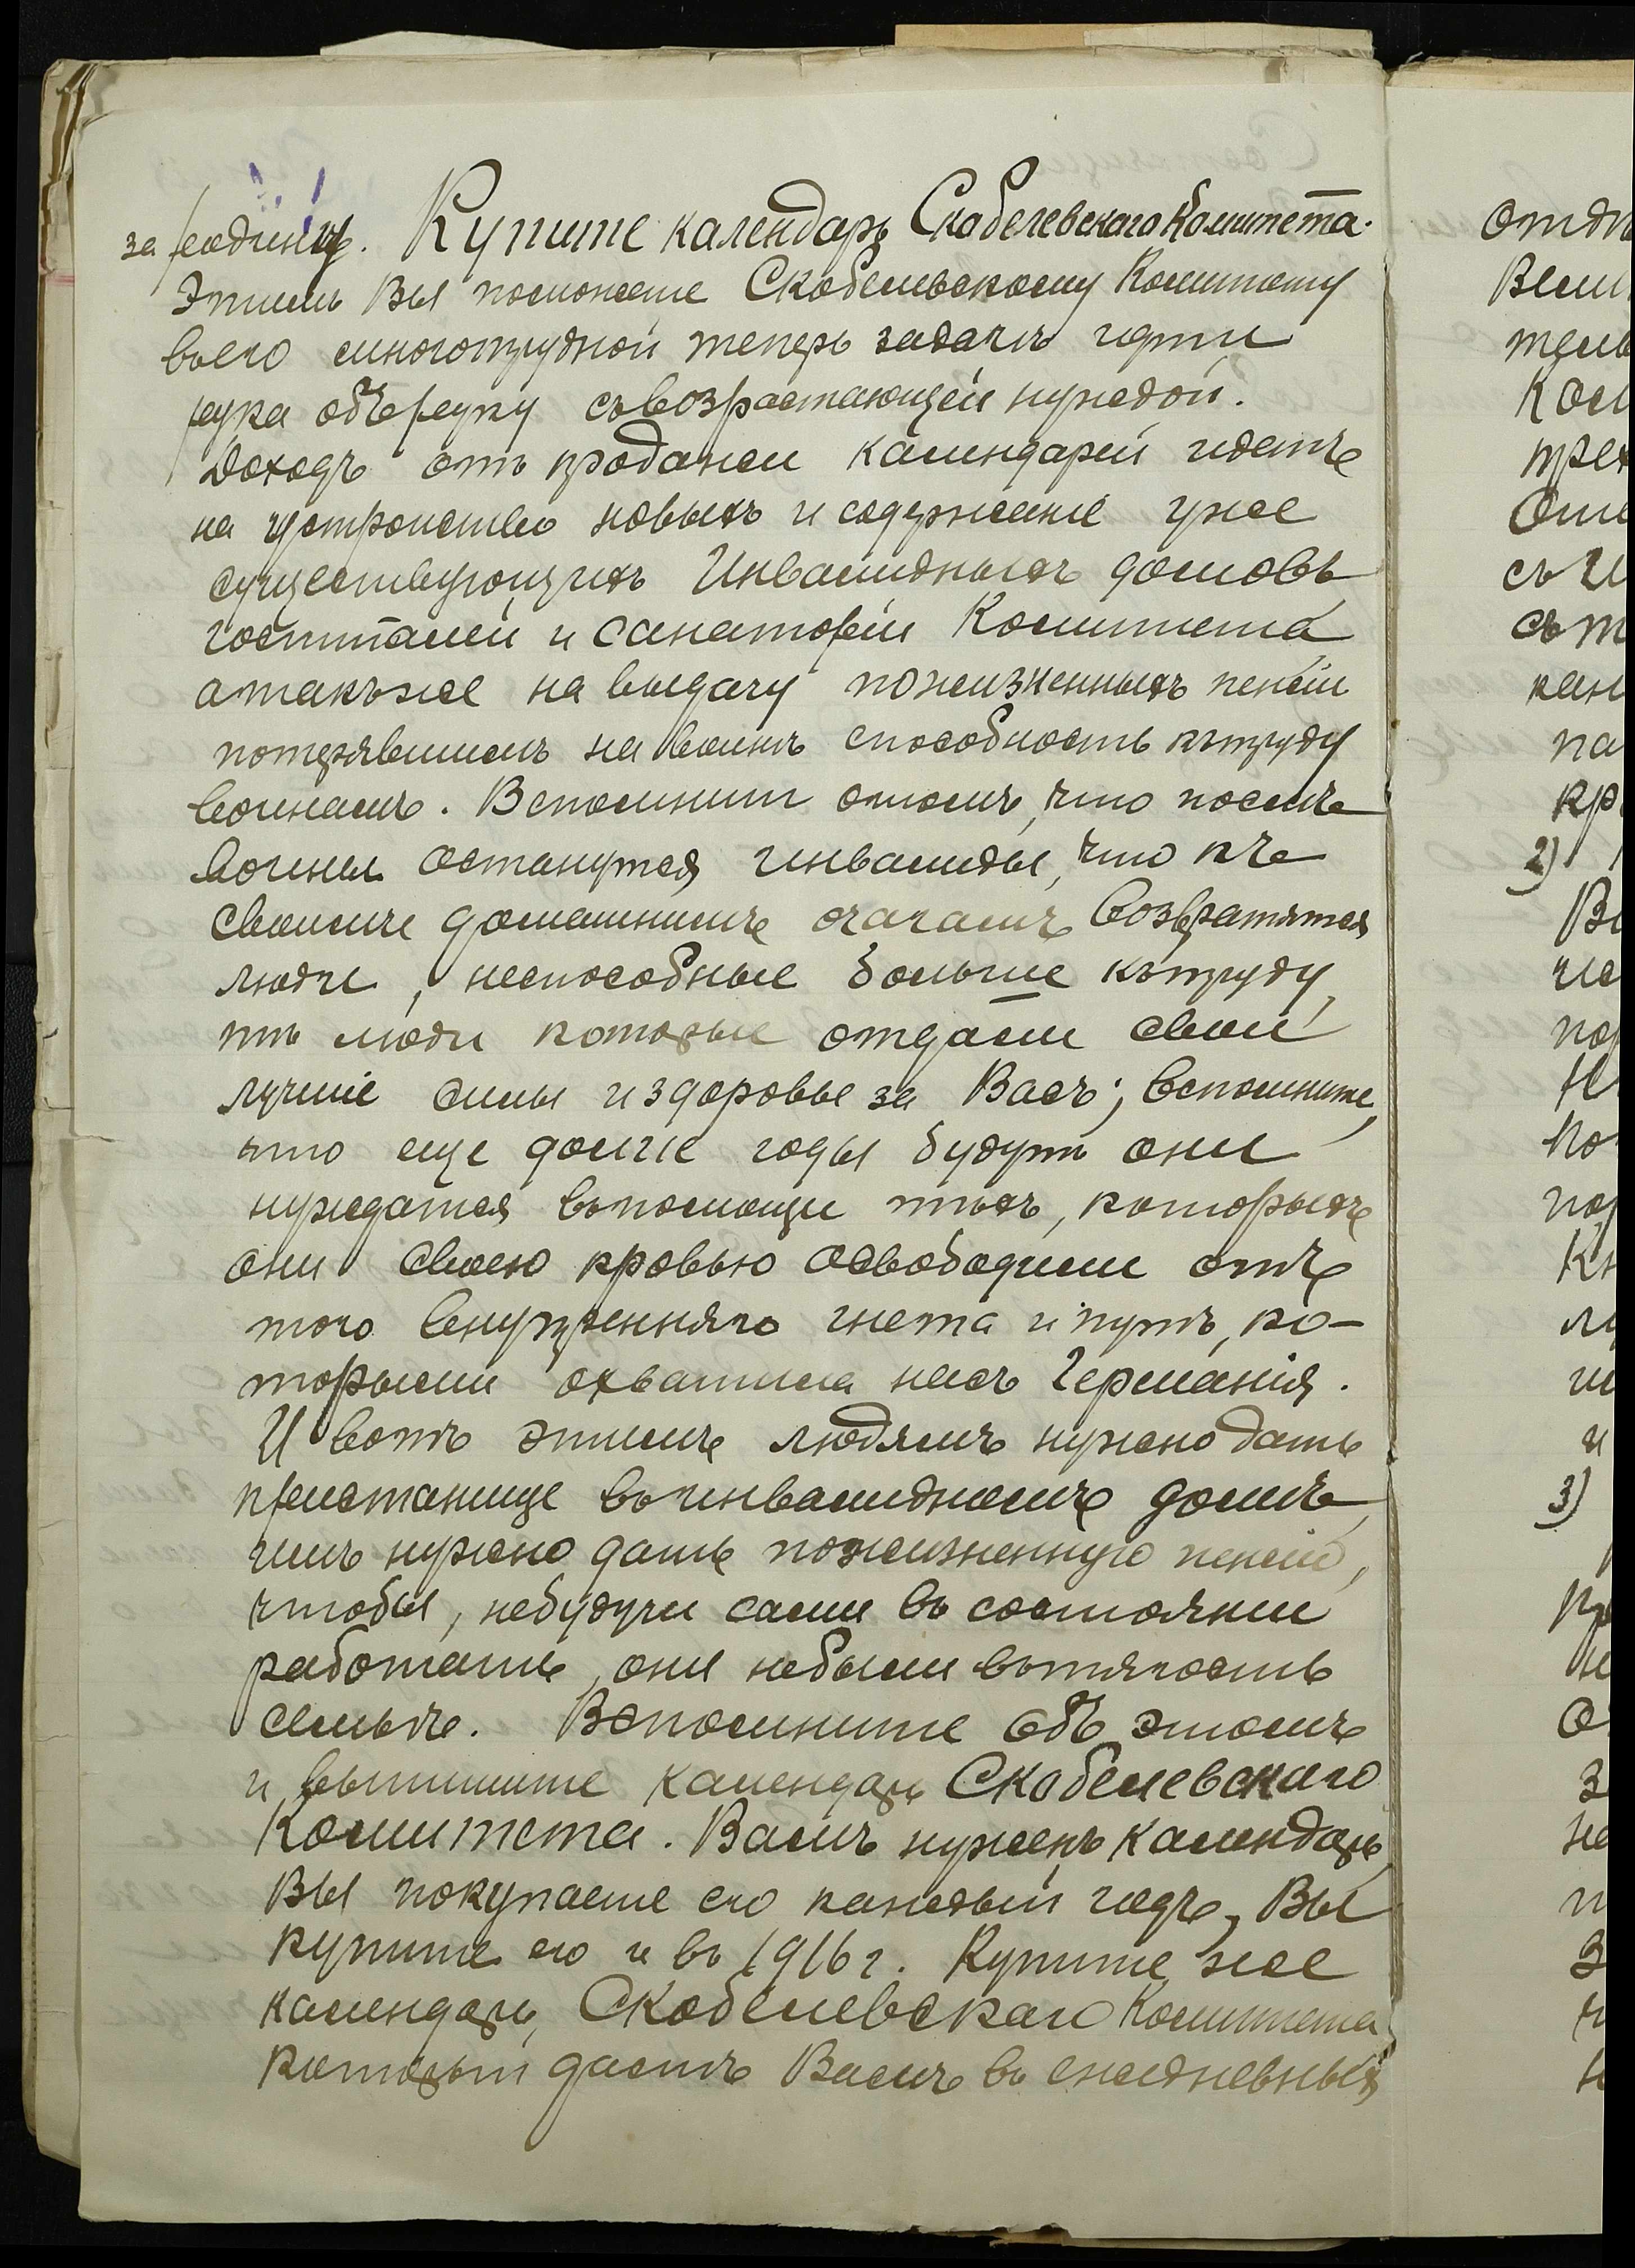 за родину. Купите календарь Скобелевскаго Комитета.
Этимъ Вы поможете Скобелевскому Комитету
въего многотрудной теперь задачѣ идти
рука объ руку съвозрастающей нуждой.
Доходъ отъ продажи календарей идетъ
на устройство новыхъ и содержание уже
существующихъ Инвалидныхъ домовъ,
госпиталей и санаторій Комитета,
атакъже на выдачу пожизненныхъ пенсій
потерявшимъ на войнѣ способность къ труду
воинамъ. Вспомнит отомъ, что послѣ
войны останутся инвалиды, что къ
своимъ домашнимъ очагамъ возвратятся
люди, неспособные больше къ труду,
тѣ люди которые отдали свои
лучшіе силы и здоровье за Васъ; вспомните,
что еще долгіе годы будутъ они
нуждатся въпомощи тѣхъ, которыхъ
они своею кровью освободили отъ
того внутренняго гнета и путъ, ко-
торыми охватила насъ Германія.
И вотъ этимъ людямъ нужно дать
пристанище въ инвалидномъ домѣ,
имъ нужно дать пожизненную пенсію,
чтобы, небудучи сами въ состояніи
работать, они небыли вътягость
семьѣ. Вспомните объ этомъ
и выпишите календарь Скобелевскаго
Комитета. Вамъ нуженъ календарь,
Вы покупаете его каждый годъ, Вы
купите его и въ 1916 г. Купите же
календарь, Скобелевскаго Комитета,
который дастъ Вамъ въ ежедневныя
2)
3)